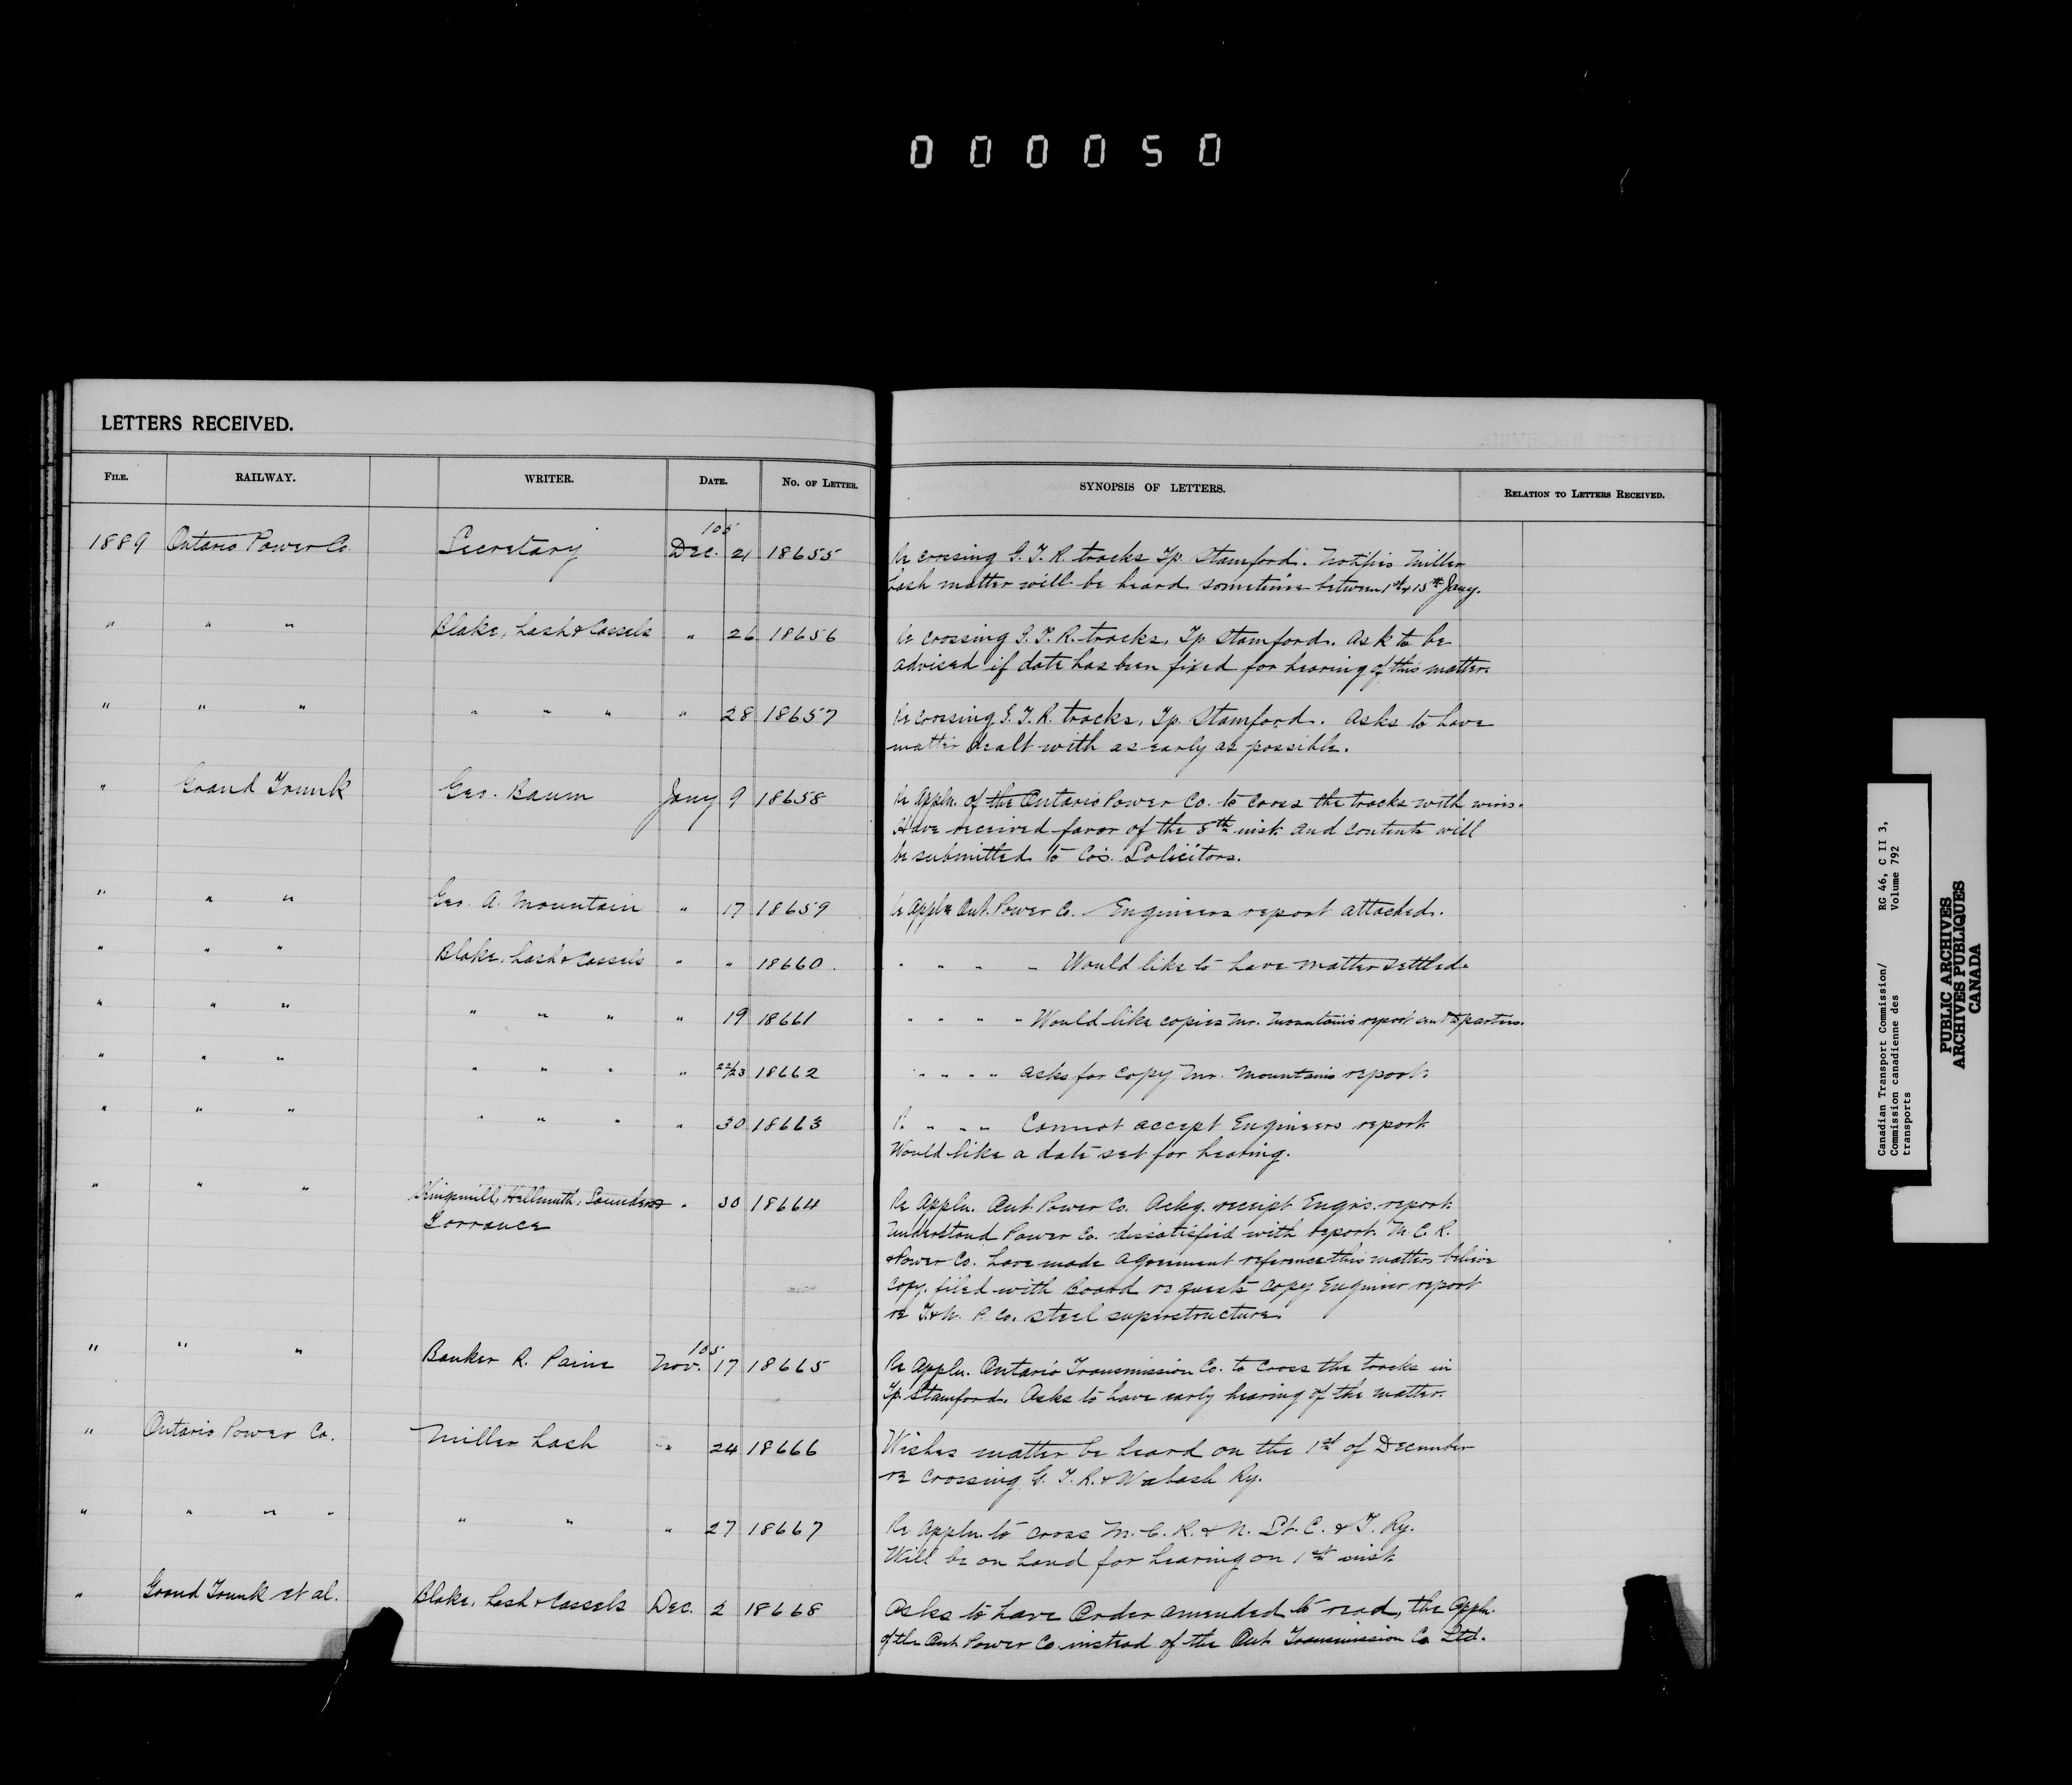 000050
LETTERS RECEIVED.
FILE. RAILWAY. WRITER. DATE. NO. OF LETTER. SYNOPSIS OF LETTERS. RELATION TO LETTERS RECEIVED.
1889 Ontario Power Co. Secretary Dec. 105 21 18655 Re crossing G. T. R. tracks Tp. Stamford. Notifies Miller
Lash matter will be heard sometime between 1st & 15th Jany.
" " " Blake, Lash & Cassels " 26 18656 Re crossing G. T. R. tracks, Tp. Stamford. Ask to be
advised if date has been fixed for hearing of this matter.
" " " " " " " 28 18657 Re crossing G. T. R. tracks, Tp. Stamford. Asks to have
matter dealt with as early as possible.
" Grand Trunk Geo. Baum Jany 9 18658 Re Appln. of the Ontario Power Co. to cross the tracks with wires.
Have received favor of the 8th inst. and contents will
be submitted to Co's. Solicitors.
" " " Geo. A. Mountain " 17 18659 Re Appln Ont. Power Co. Engineers report attached.
" " " Blake, Lash & Cassels " " 18660. " " " " Would like to have matter settled.
" " " " " " " 19 18661 " " " " Would like copies Mr. Mountain's report sent to parties.
" " " " " " " 22/23 18662 " " " " Asks for copy Mr. Mountain's report.
" " " " " " " 30 18663 R. " " " Cannot accept Engineers report
Would like a date set for hearing.
" " " Kingsmill, Hellmuth, Saunders & " 30 18664 Re Appln. Ont. Power Co. Ackg. receipt Engrs. report.
Torrance Understand Power Co. dissatisfied with report. M. C. R.
& Power Co. have made agreement reference this matter, believe
copy filed with Board requests copy Engineer report
re T. & N. P. Co. steel superstructure.
" " " Banker R. Paine Nov. 105 17 18665 Re Appln. Ontario Transmission Co. to cross the tracks in
Tp. Stamford. Asks to have early hearing of the matter.
" Ontario Power Co. Miller Lash " 24 18666 Wishes matter be heard on the 1st of December
re crossing G. T. R. & Wabash Ry.
" " " " " " " 27 18667 Re Appln. to cross M. C. R. & N. St. C. & T. Ry.
Will be on hand for hearing on 1st inst.
" Grand Trunk et al. Blake, Lash & Cassels Dec. 2 18668 Asks to have Order amended to read, the Appln.
of the Ont. Power Co instead of the Ont. Transmission Co. Ltd.
Canadian Transport Commission/ RG 46, C II 3,
Commission canadienne des Volume 792
transports
PUBLIC ARCHIVES
ARCHIVES PUBLIQUES
CANADA